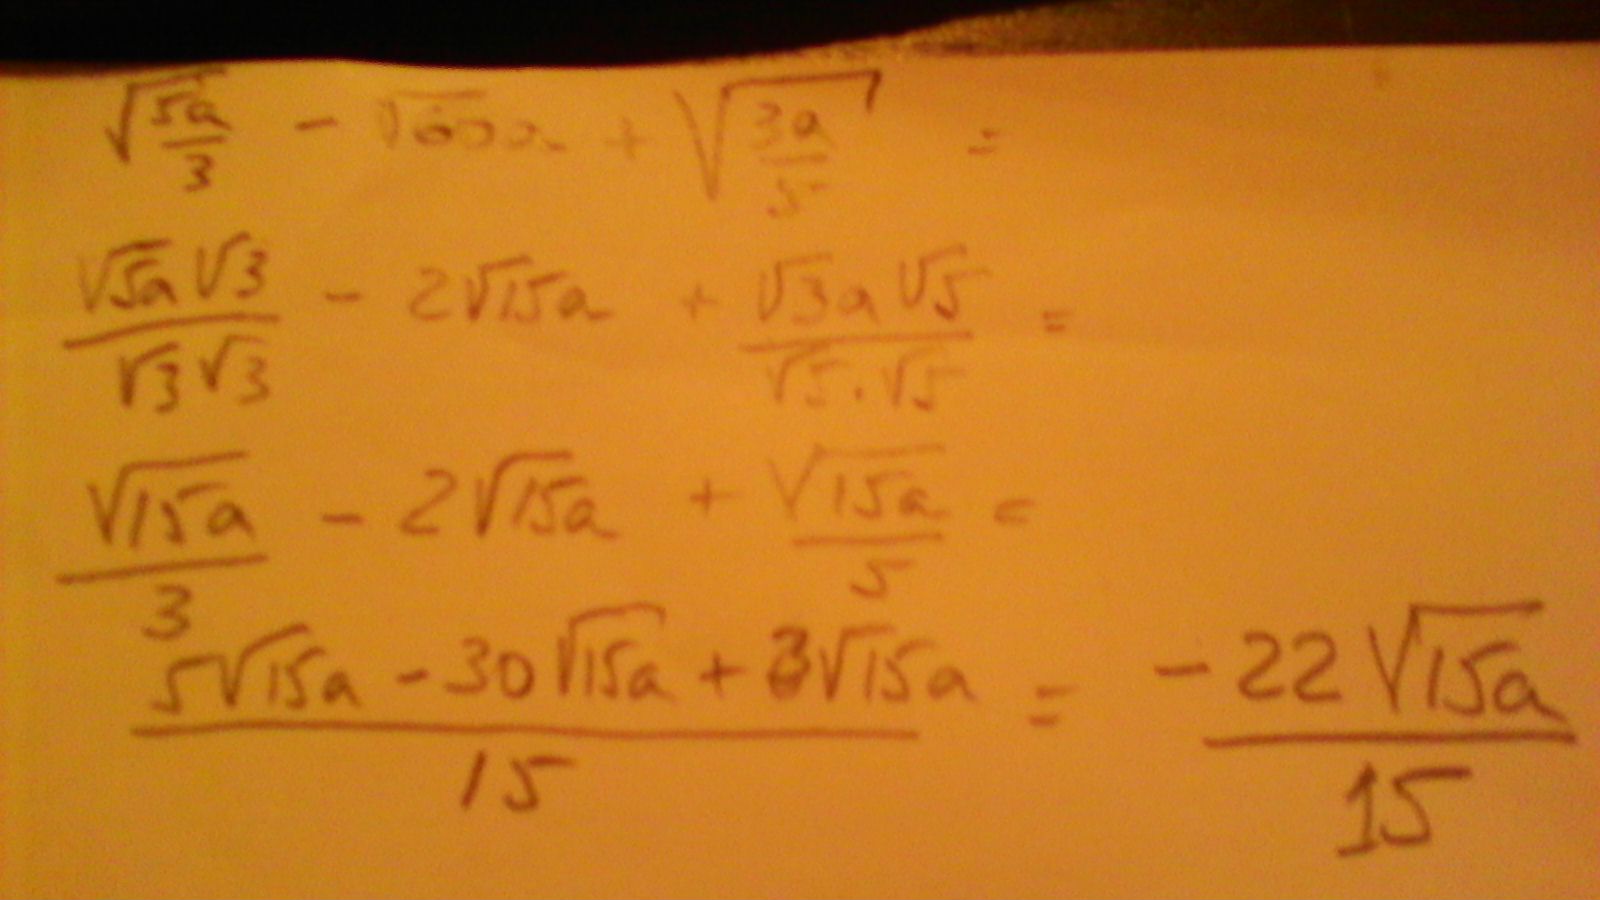 √(5a/3) - √60a + √(3a/5) =
(√5a √3)/(√3 √3) - 2√15a + (√3a √5)/(√5 · √5) =
√15a/3 - 2√15a + √15a/5 =
(5√15a - 30√15a + 3√15a)/15 = (-22√15a)/15